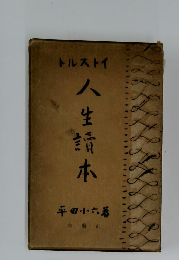 イトスルト
人生讀本
平田小六著